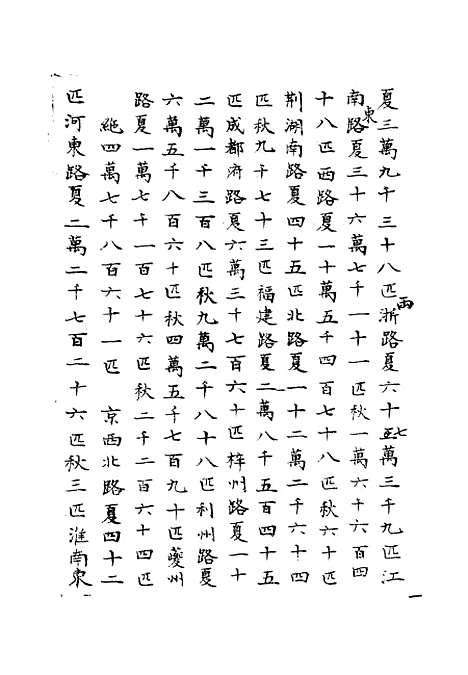 夏三萬九千三十八匹浙路夏六十五萬三千九匹江
兩
七
南路夏三十六萬七千一十一匹秋一萬六千六百四
東
十八匹西路夏一十萬五千四百七十八匹秋六十匹
荆湖南路夏四十五匹北路夏一十二萬二千六十四
匹秋九千七十三匹福建路夏二萬八千五百四十五
匹成都府路夏六萬三千七百六十匹梓州路夏一十
二萬一千三百八匹秋九萬二千八十八匹利州路夏
六萬五千八百六十匹秋四萬五千七百九十匹夔州
路夏一萬七千一百七十六匹秋二千二百六十四匹
絁四萬七千八百六十一匹 京西北路夏四十二
匹河東路夏二萬二千七百二十六匹秋三匹淮南東